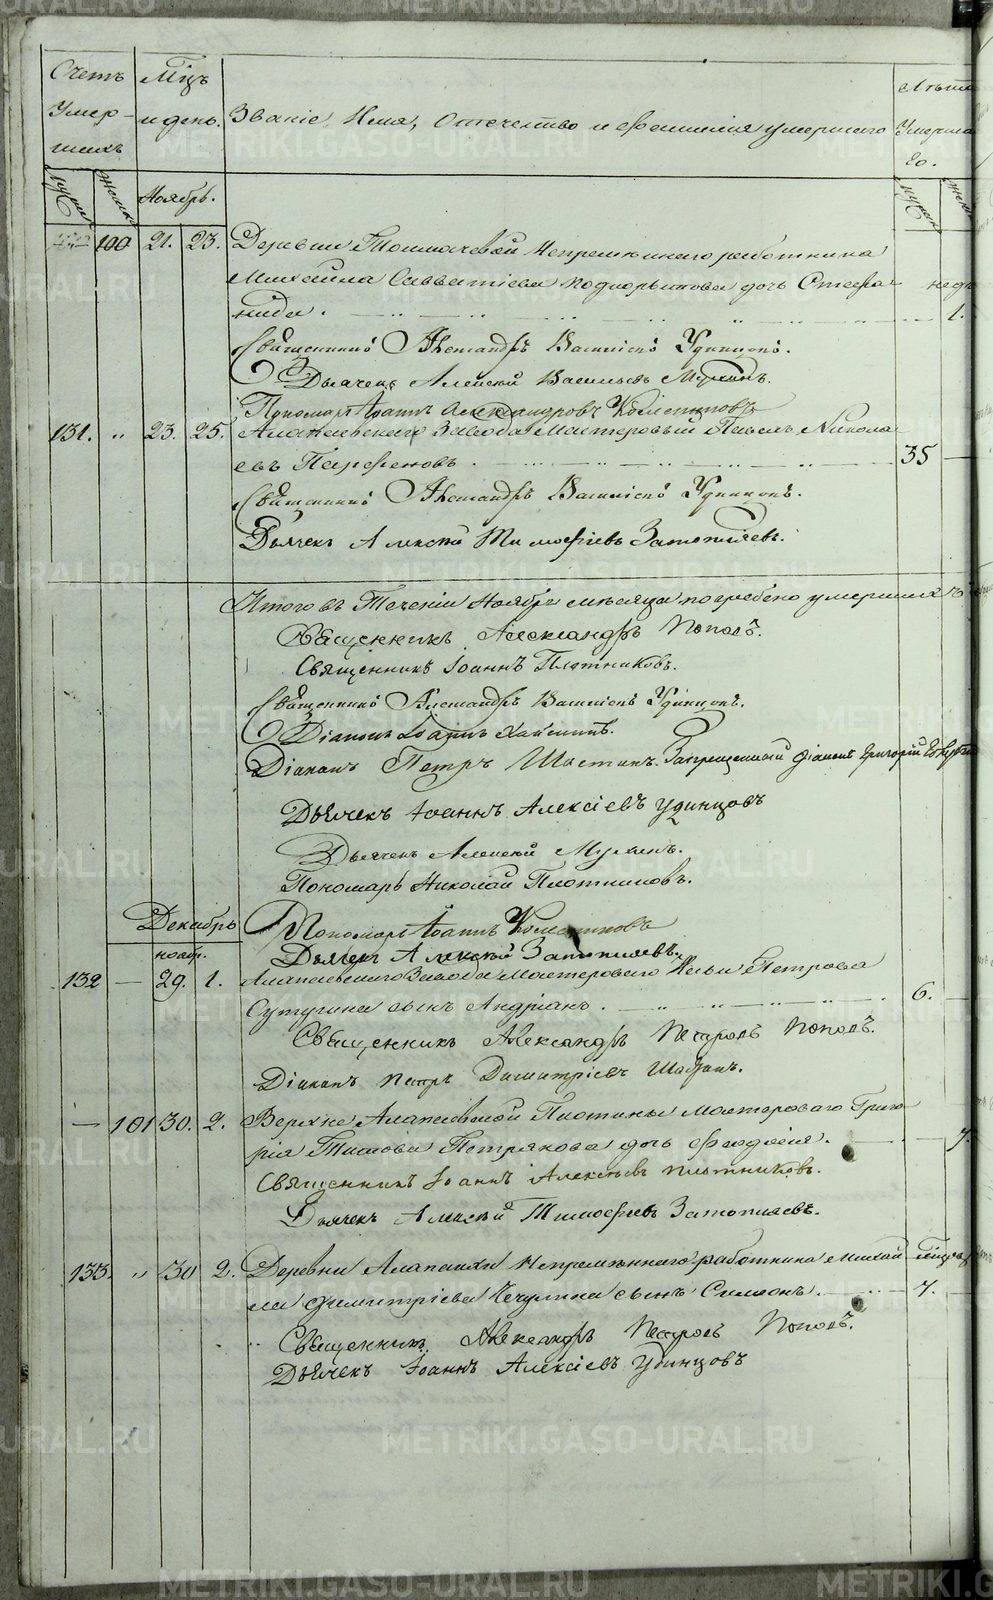 Счетъ Умершихъ
Мцъ и день.
Званіе, Имя, Отечество и Фамилія умершаго
Лѣта Умершаго.
Муж
Жен
Ноябрь.
100 21. 23. Деревни Толмачевой Непремѣннаго работника
Михаила Савватіева Подкорытова дочь Стефа- недѣ
нида. 1.
Священникъ Александръ Удинцовъ.
Дьячекъ Алексѣй Васильевъ Мухинъ.
Пономарь Іоаннъ Александровъ Коместиковъ
131. „ 23. 25. Алапаевскаго Завода Мастеровый Павелъ Никола
евъ Парфеновъ. 35
Священникъ Александръ Удинцовъ.
Дьячекъ Алексѣй Тимофѣевъ Затопляевъ.
Итого въ Теченіи Ноября мѣсяца погребено умершихъ
Священникъ Александръ Поповъ.
Священникъ Іоаннъ Плотниковъ.
Священникъ Александръ Удинцовъ.
Діаконъ Іоаннъ
Діаконъ Петръ Шастинъ. Запрещенный Діаконъ Григорій
Дьячекъ Іоаннъ Алексіевъ Удинцовъ
Дьячекъ Алексѣй Мухинъ.
Пономарь Николай Плотниковъ.
Декабрь
Пономарь Іоаннъ
ноябр.
Дьячекъ Алексѣй Затопляевъ.
132 — 29. 1. Алапаевскаго Завода Мастероваго Ильи Петрова
Сутугина сынъ Андріанъ. 6.
Священникъ Александръ Петровъ Поповъ.
Діаконъ Петръ Димитріевъ Шастинъ.
— 101 30. 2. Верхне Алапаевской Плотины Мастероваго Григо
рія Титова Петрякова дочь Феодосія. 7.
Священникъ Іоаннъ Алексѣевъ Плотниковъ.
Дьячекъ Алексѣй Тимофѣевъ Затопляевъ.
133. „ 30 2. Деревни Алапаихи Непремѣннаго работника Михай
ла Димитріева Кечулина сынъ Симеонъ. 7.
Священникъ Александръ Петровъ Поповъ.
Дьячекъ Іоаннъ Алексіевъ Удинцовъ
METRIKI.GASO-URAL.RU